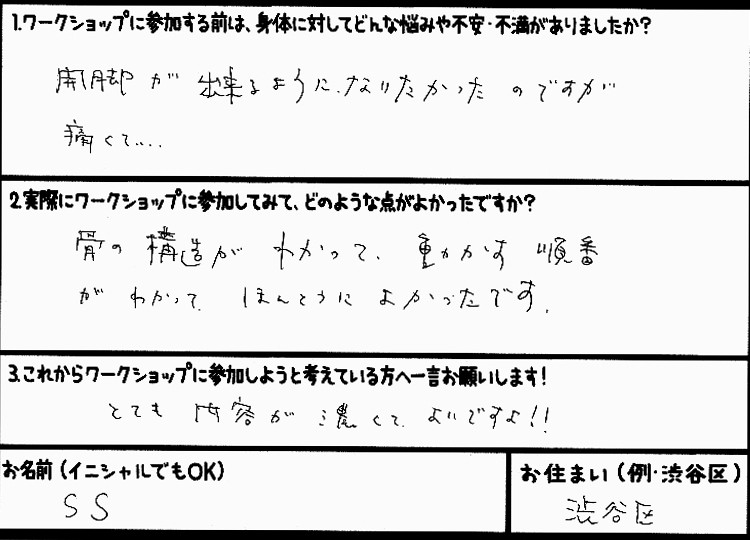 1.ワークショップに参加する前は、身体に対してどんな悩みや不安・不満がありましたか?
開脚が出来るように、なりたかったのですが
痛くて....
2.実際にワークショップに参加してみて、どのような点がよかったですか?
骨の構造がわかって、動かす順番
がわかって、ほんとうによかったです。
3.これからワークショップに参加しようと考えている方へ一言お願いします!
とても内容が濃くて、よいですよ!!
お名前(イニシャルでもOK)
SS
お住まい(例・渋谷区)
渋谷区